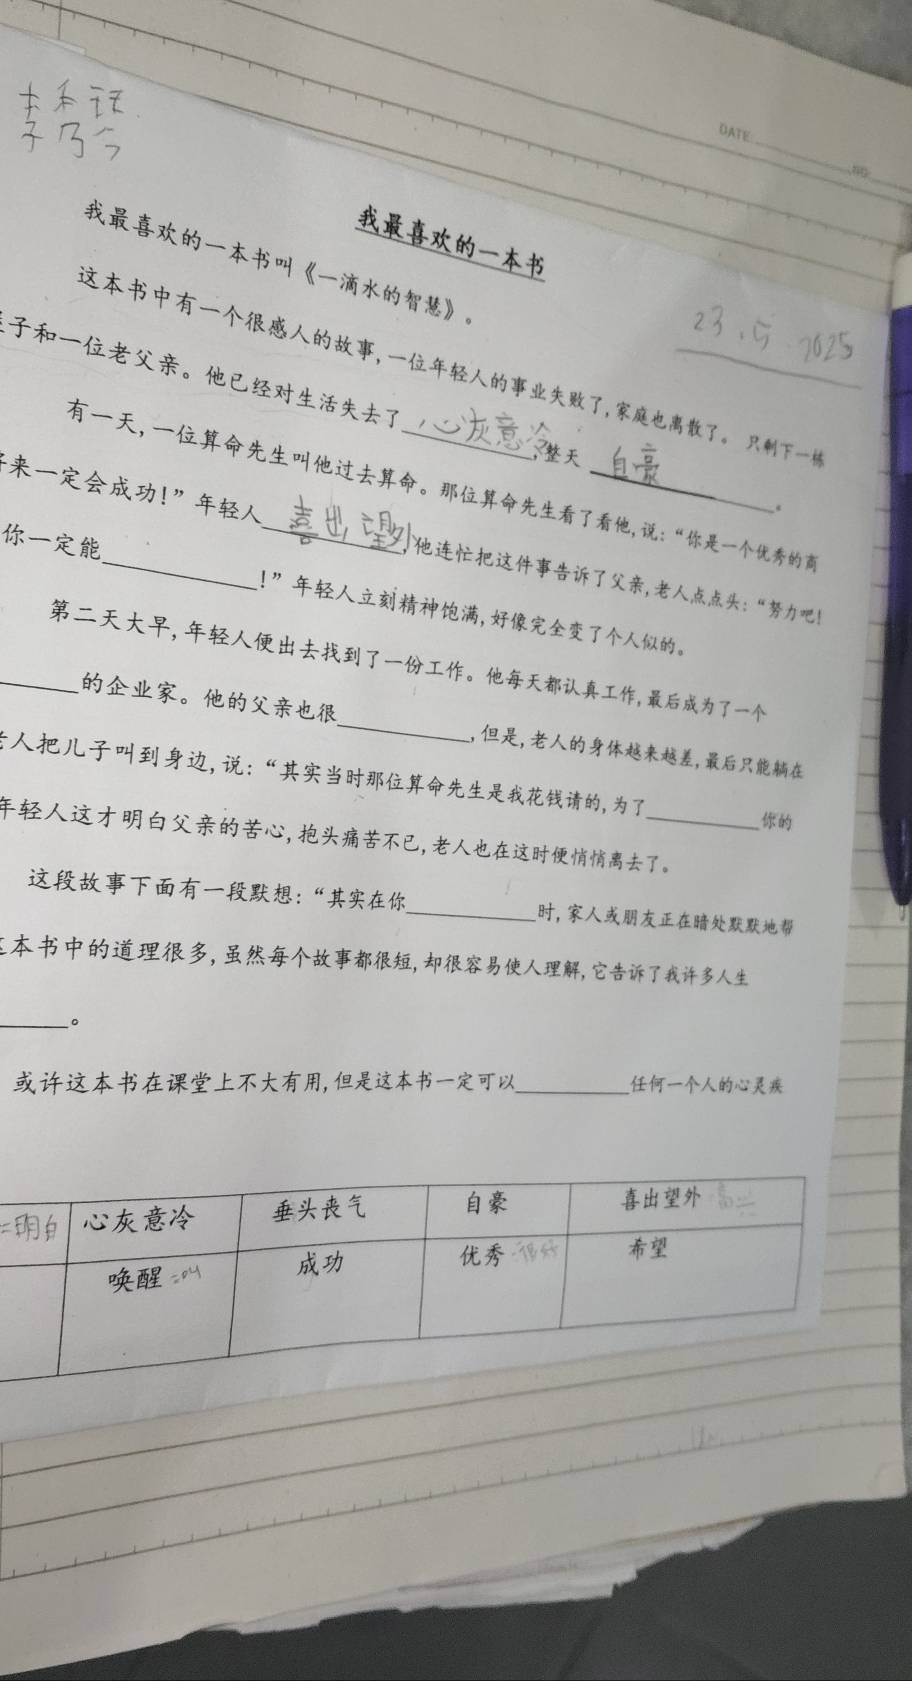 李秀琴
DATE
NO
我最喜欢的一本书
23.5.2025
我最喜欢的一本书叫《一滴水的智慧》。
这本书中有一个很感人的故事,一位年轻人的事业失败了,家庭也离散了。只剩下一栋
子和一位老父亲。他已经对生活失去了心灰意冷,整天自豪。
有一天,一位算命先生叫他过去算命。那位算命先生看了看他,说:“你是一个优秀的商
来一定会成功!”年轻人喜出望外,他连忙把这件事告诉了父亲,老人点点头:“努力吧!
你一定能________!”年轻人立刻精神饱满,好像完全变了个人似的。
第二天大早,年轻人便出去找到了一份工作。他每天都认真工作,最后成为了一个
________的企业家。他的父亲也很________,但是,老人的身体越来越差,最后只能躺在
人把儿子叫到身边,说:“其实当时那位算命先生是我花钱请的,为了________你的
年轻人这才明白父亲的苦心,抱头痛苦不已,老人也在这时便悄悄离去了。
这段故事下面有一段默想:“其实在你________时,家人或朋友正在暗处默默地帮
本书中的道理很多,虽然每个故事都很短,却很容易使人理解,它告诉了我许多人生
________。
或许这本书在课堂上不大有用,但是这本书一定可以________任何一个人的心灵疾
=明白 心灰意冷 垂头丧气 自豪 喜出望外
唤醒=叫 成功 优秀 希望